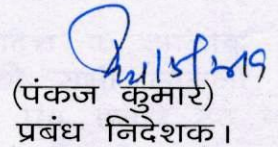 (पंकज कुमार)
प्रबंध निदेशक।